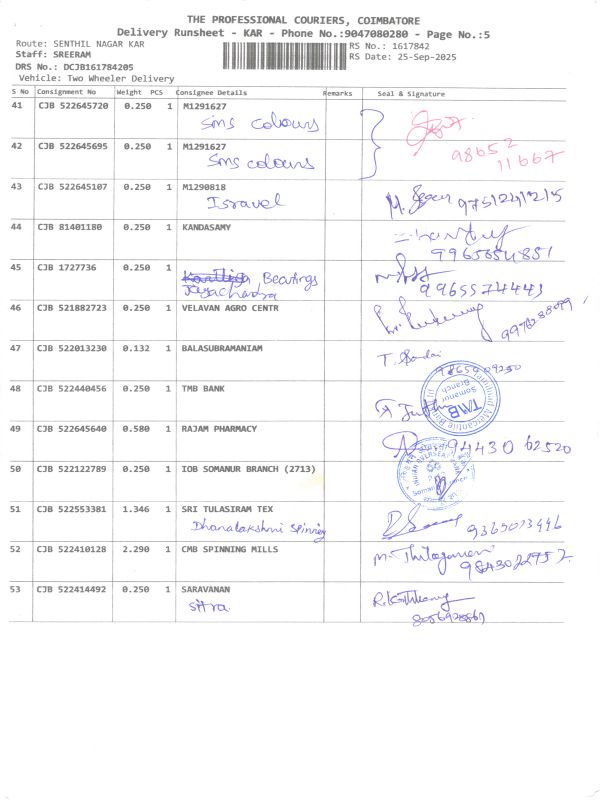 THE PROFESSIONAL COURIERS, COIMBATORE
Delivery Runsheet - KAR - Phone No.:9047080280 - Page No.:5
Route: SENTHIL NAGAR KAR
RS No.: 1617842
Staff: SREERAM
RS Date: 25-Sep-2025
DRS No.: DCJB161784205
Vehicle: Two Wheeler Delivery
S No Consignment No Weight PCS Consignee Details Remarks Seal & Signature
41 CJB 522645720 0.250 1 M1291627
Sms colours
98652
11667
42 CJB 522645695 0.250 1 M1291627
Sms colours
43 CJB 522645107 0.250 1 M1290818
Isravel
44 CJB 81401180 0.250 1 KANDASAMY
9965654851
45 CJB 1727736 0.250 1
Bearings
9965574443
46 CJB 521882723 0.250 1 VELAVAN AGRO CENTR
47 CJB 522013230 0.132 1 BALASUBRAMANIAM
9865909250
48 CJB 522440456 0.250 1 TMB BANK
TMB
Somanur
Branch
49 CJB 522645640 0.580 1 RAJAM PHARMACY
94430 62520
50 CJB 522122789 0.250 1 IOB SOMANUR BRANCH (2713)
51 CJB 522553381 1.346 1 SRI TULASIRAM TEX
Dhanalakshmi Spinning
9365073496
52 CJB 522410128 2.290 1 CMB SPINNING MILLS
53 CJB 522414492 0.250 1 SARAVANAN
Sitra.